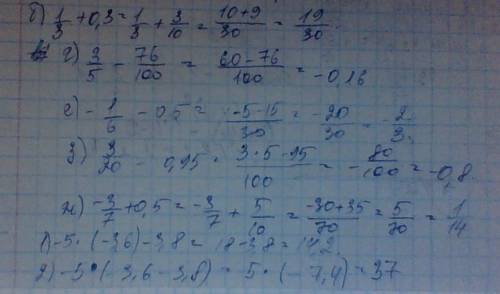 б) 1/3 + 0,3 = 1/3 + 3/10 = (10+9)/30 = 19/30
г) 3/5 - 76/100 = (60-76)/100 = -0,16
е) - 1/6 - 0,5 = (-5-15)/30 = -20/30 = - 2/3
з) 3/20 - 0,95 = (3·5-95)/100 = - 80/100 = -0,8
-3/7 + 0,5 = -3/7 + 5/10 = (-30+35)/70 = 5/70 = 1/14
1) -5·(-3,6)-3,8 = 18-3,8 = 14,2
2) -5·(-3,6-3,8) = -5·(-7,4) = 37